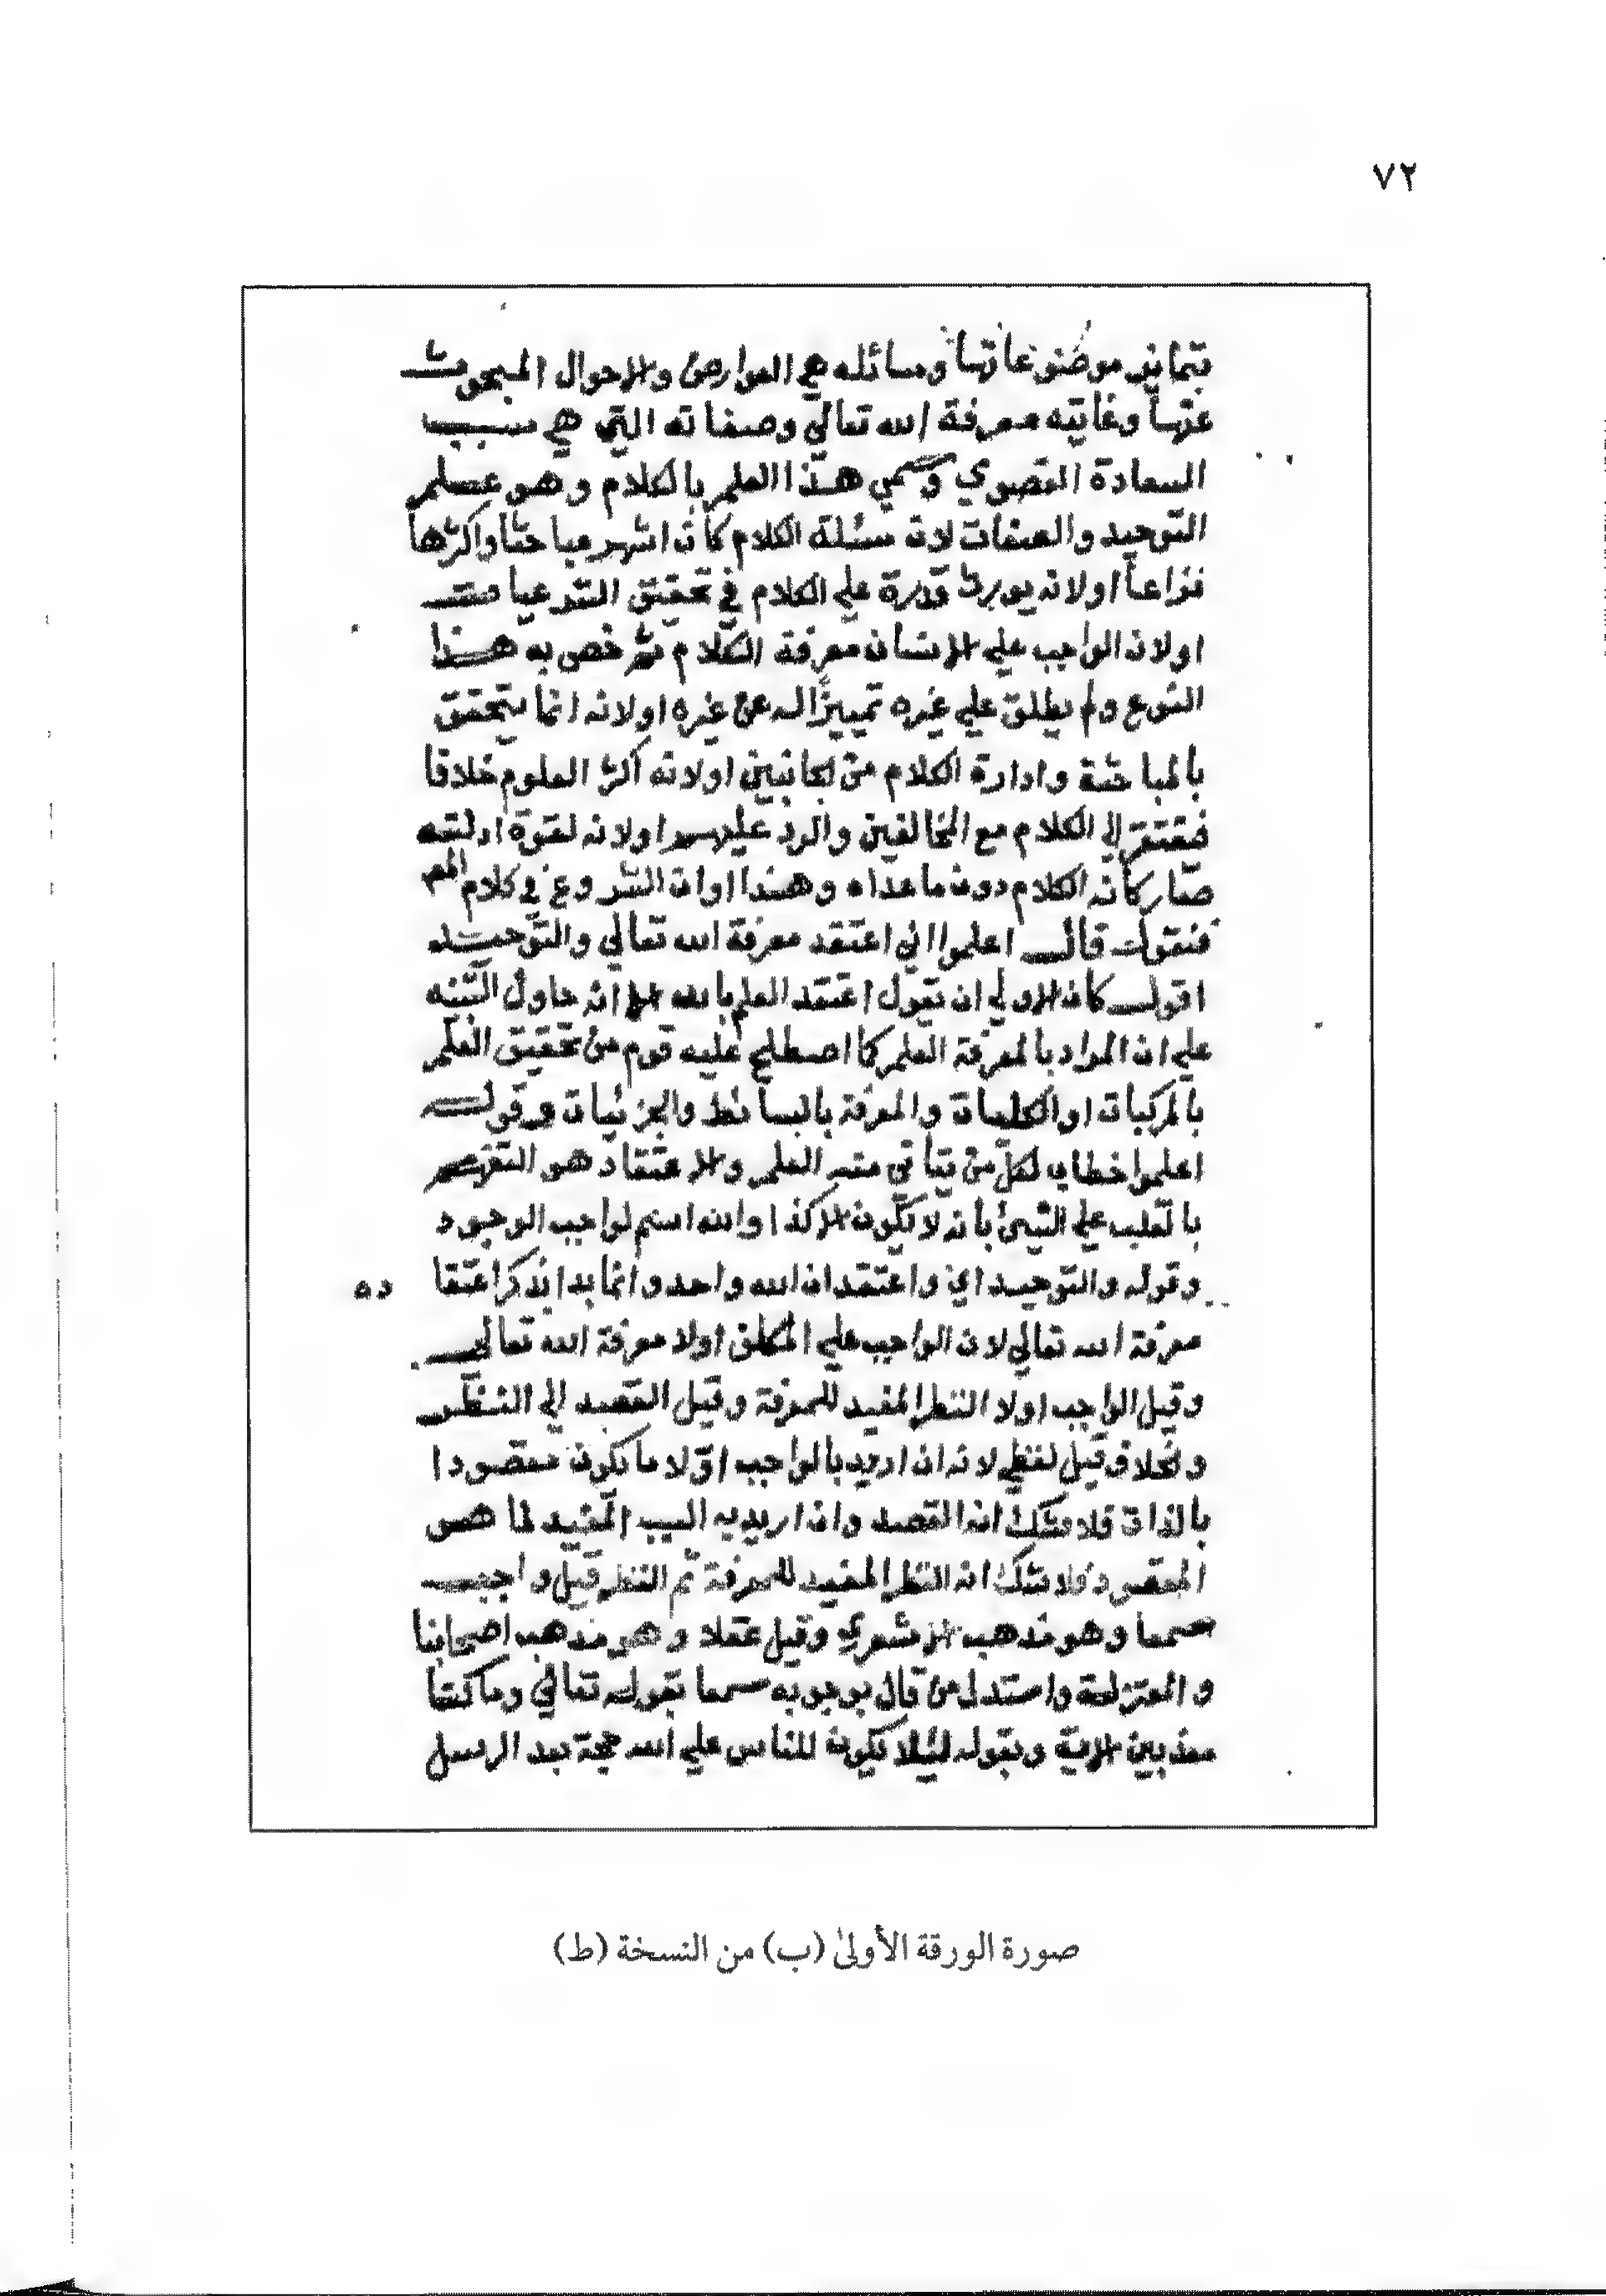 ٧٢
بتمايز موضوعاتها ومسائله هي العوارض والاحوال المبحوث
عنها وغايته معرفة الله تعالي وصفاته التي هي سبب
السعادة القصوي وسمي هذا العلم بالكلام وهو علم
التوحيد والصفات لان مسئلة الكلام كان اشهر مباحثا واكثرها
نزاعا اولانه يورث قدرة علي الكلام في تحقيق الشرعيات
اولان الواجب علي الانسان معرفة الكلام ثم خص به هذا
النوع ولم يطلق علي غيره تمييزا له عن غيره اولانه انما يتحقق
بالمباحثة وادارة الكلام من الجانبين اولانه اكثر العلوم خلافا
فيفتقر الي الكلام مع المخالفين والرد عليهم اولانه لقوة ادلته
صار كانه الكلام دون ما عداه وهذا اوان الشروع في كلام المص
فنقول قال اعلموا اني اعتقد معرفة الله تعالي والتوحيد له
اقول كان الاولي ان يقول اعتقد العلم بالله الا انه حاول التنبيه
علي ان المراد بالمعرفة العلم كما اصطلح عليه قوم من تحقيق العلم
بالمركبات او الكليات والمعرفة بالبسائط والجزئيات وقوله
اعلموا خطاب لكل من يتاتي منه العلم والاعتقاد هو التصميم
بالقلب علي الشيئ بانه لا يكون الا كذا والله اسم لواجب الوجود
وقوله والتوحيد اي واعتقد ان الله واحد وانما بدا بذكر اعتقا ده
معرفة الله تعالي لان الواجب علي المكلف اولا معرفة الله تعالي
وقيل الواجب اولا النظر المفيد للمعرفة وقيل القصد الي النظر
والخلاف قيل لفظي لانه ان اريد بالواجب اولا ما يكون مقصودا
بالذات فلا شك انه القصد وان اريد به السبب المفيد لما هو
المقصود فلا شك انه النظر المفيد للمعرفة ثم النظر قيل واجب
سمعا وهو مذهب الاشعري وقيل عقلا وهو مذهب اصحابنا
والمعتزلة واستدل من قال بوجوبه سمعا بقوله تعالي وما كنا
معذبين الاية وبقوله لئلا يكون للناس علي الله حجة بعد الرسل
صورة الورقة الأولىٰ (ب) من النسخة (ط)